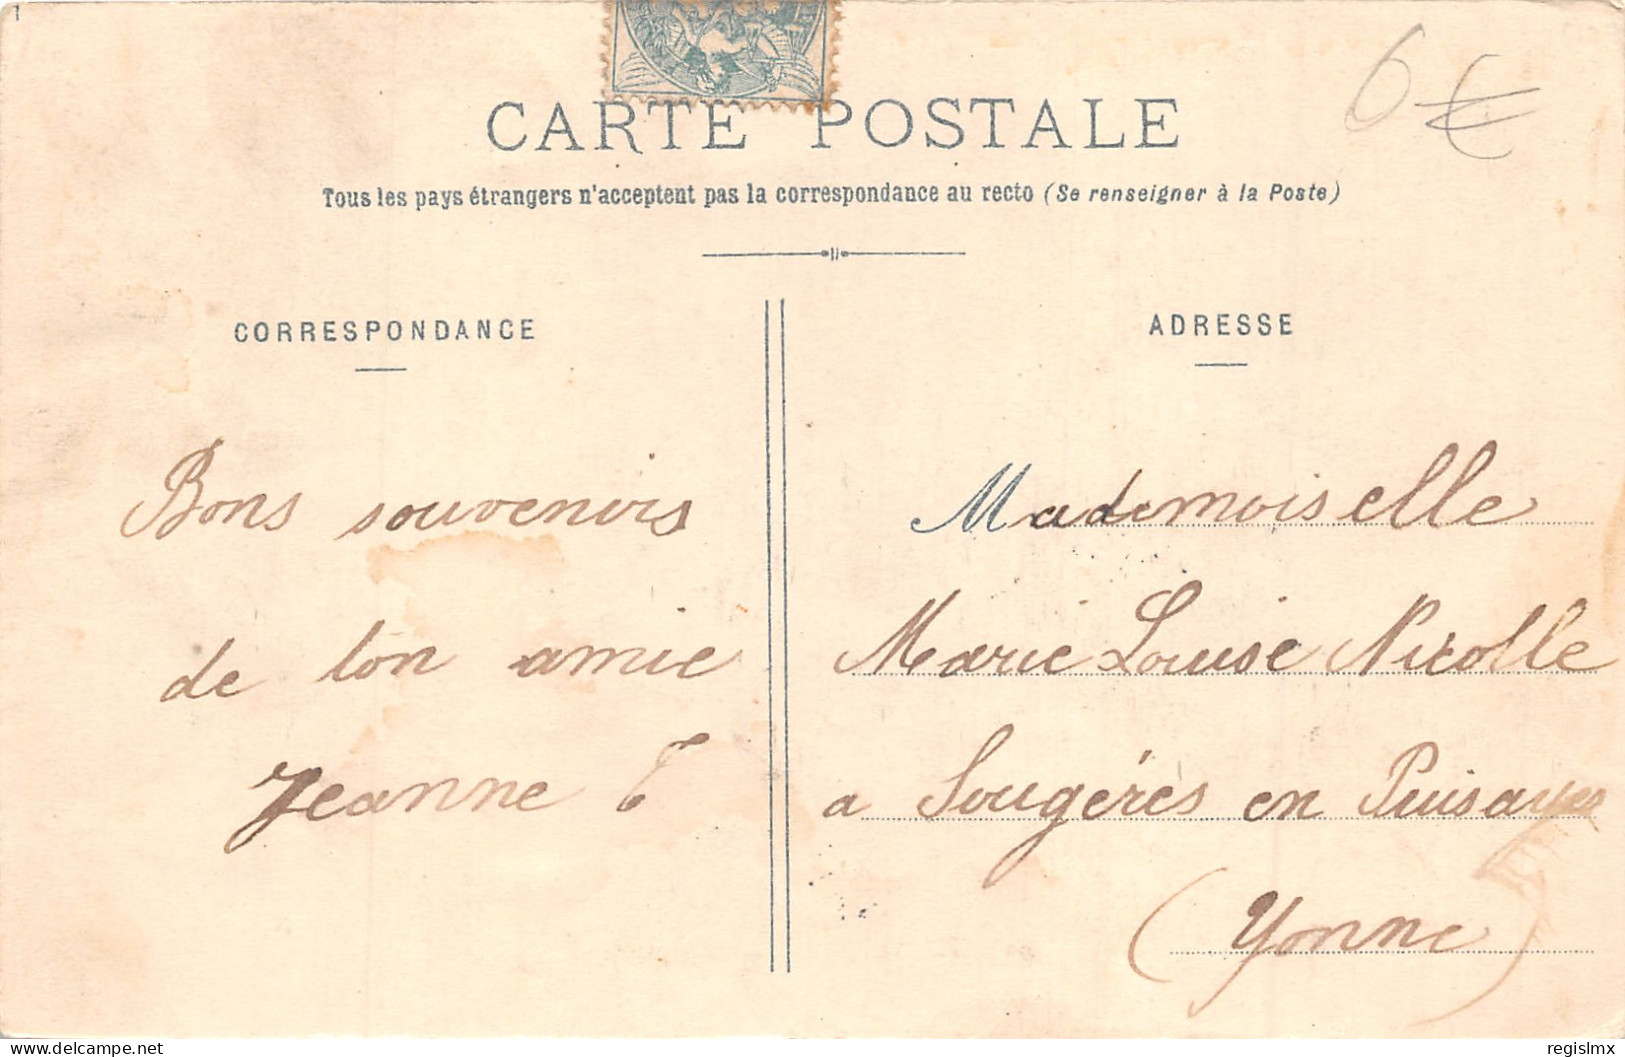 6 €
CARTE POSTALE
Tous les pays étrangers n'acceptent pas la correspondance au recto (Se renseigner à la Poste)
CORRESPONDANCE
Bons souvenirs
de ton amie
Jeanne
ADRESSE
Mademoiselle
Marie Louise Nicolle
a Sougéres en Puisaye
(Yonne)
delcampe.net
regislmx